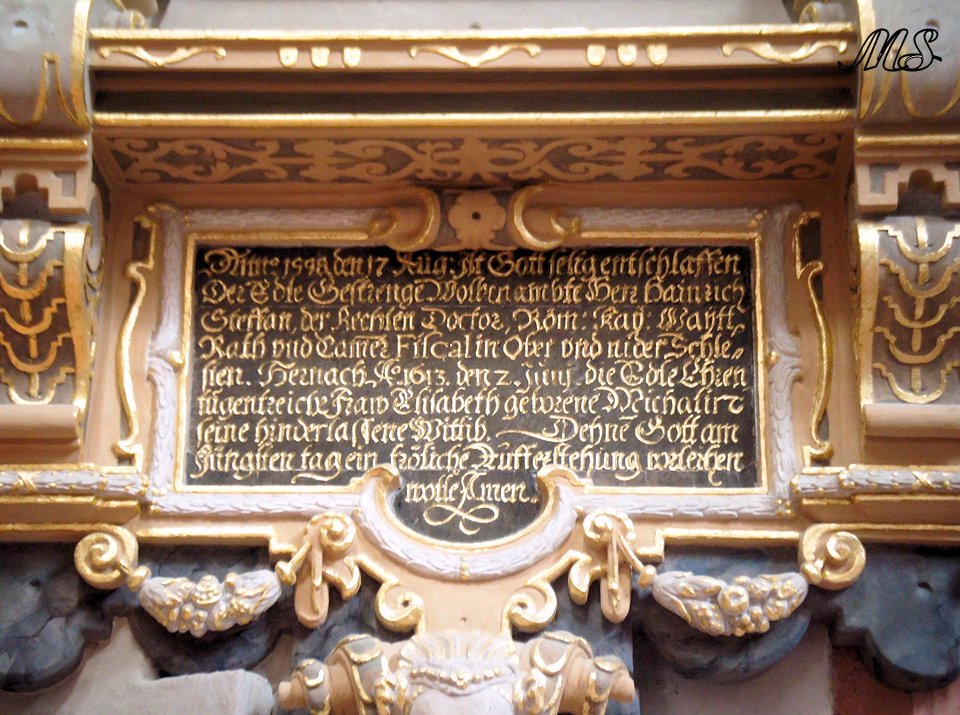 MS
Anno 1598 den 17 Aug: ist Gott selig entschlaffen
Der Edle Gestrenge Wolbenambte Herr Hainrich
Steffan, der Rechten Doctor, Röm: Kay: Maytt,
Rath vnd Camer Fiscal in Ober vnd nider Schle-
sien. Hernach A°. 1613. den 2. Junij. die Edle Ehren
tugentreiche Fraw Elisabeth geborene
seine hinderlassene Wittib. Denen Gott am
Jüngsten tag ein fröliche Aufferstehung verleihen
wolle Amen.